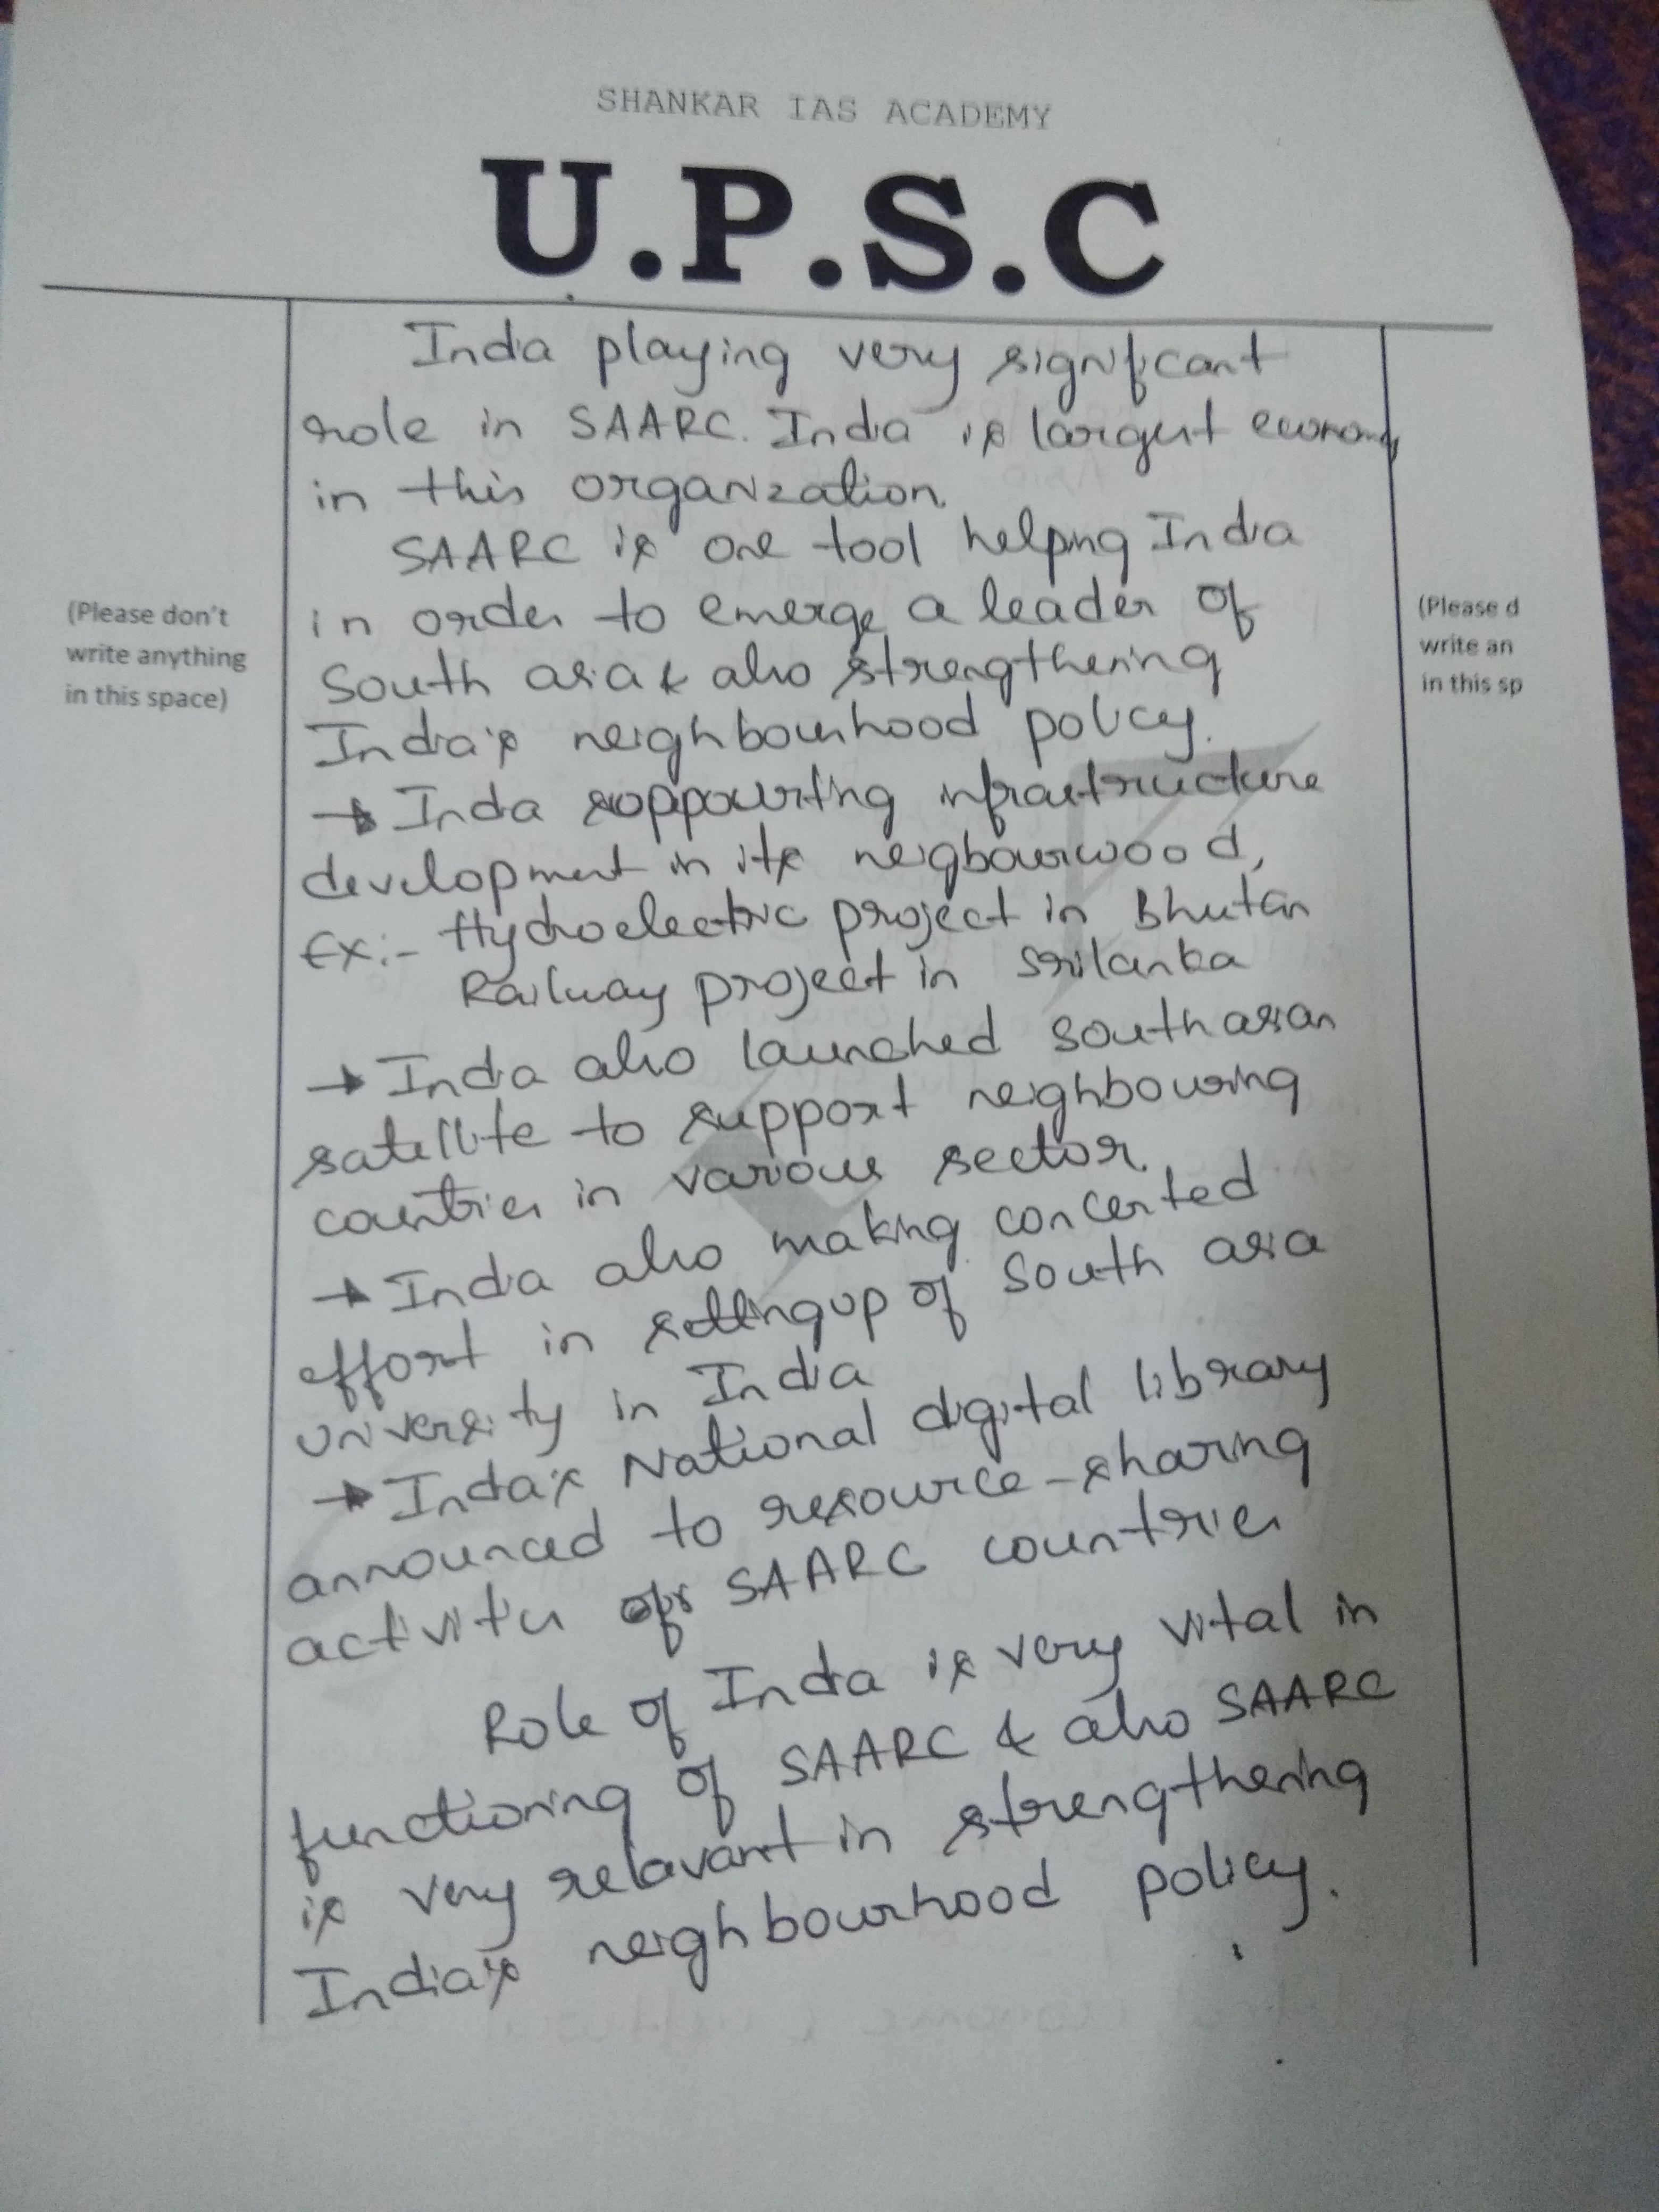 SHANKAR IAS ACADEMY
U.P.S.C
India playing very significant
role in SAARC. India is largest economy
in this organization.
SAARC is one tool helping India
in order to emerge a leader of
(Please don't
write anything
in this space)
(Please d
write an
in this sp
South asia & also strengthening
India's neighbourhood policy.
→ India soppourting infrastructure
development in its neigbourwood,
Ex:- Hydroelectric project in Bhutan
Railway project in Srilanka
→ India also launched southasian
satellite to support neighbouring
countries in various sector.
→ India also making concerted
effort in settingup of South asia
university in India
→ India's National digital library
announced to resource-sharing
activities of SAARC countries
Role of India is very vital in
functioning of SAARC & also SAARC
is very relavant in strengthening
India's neighbourhood policy.